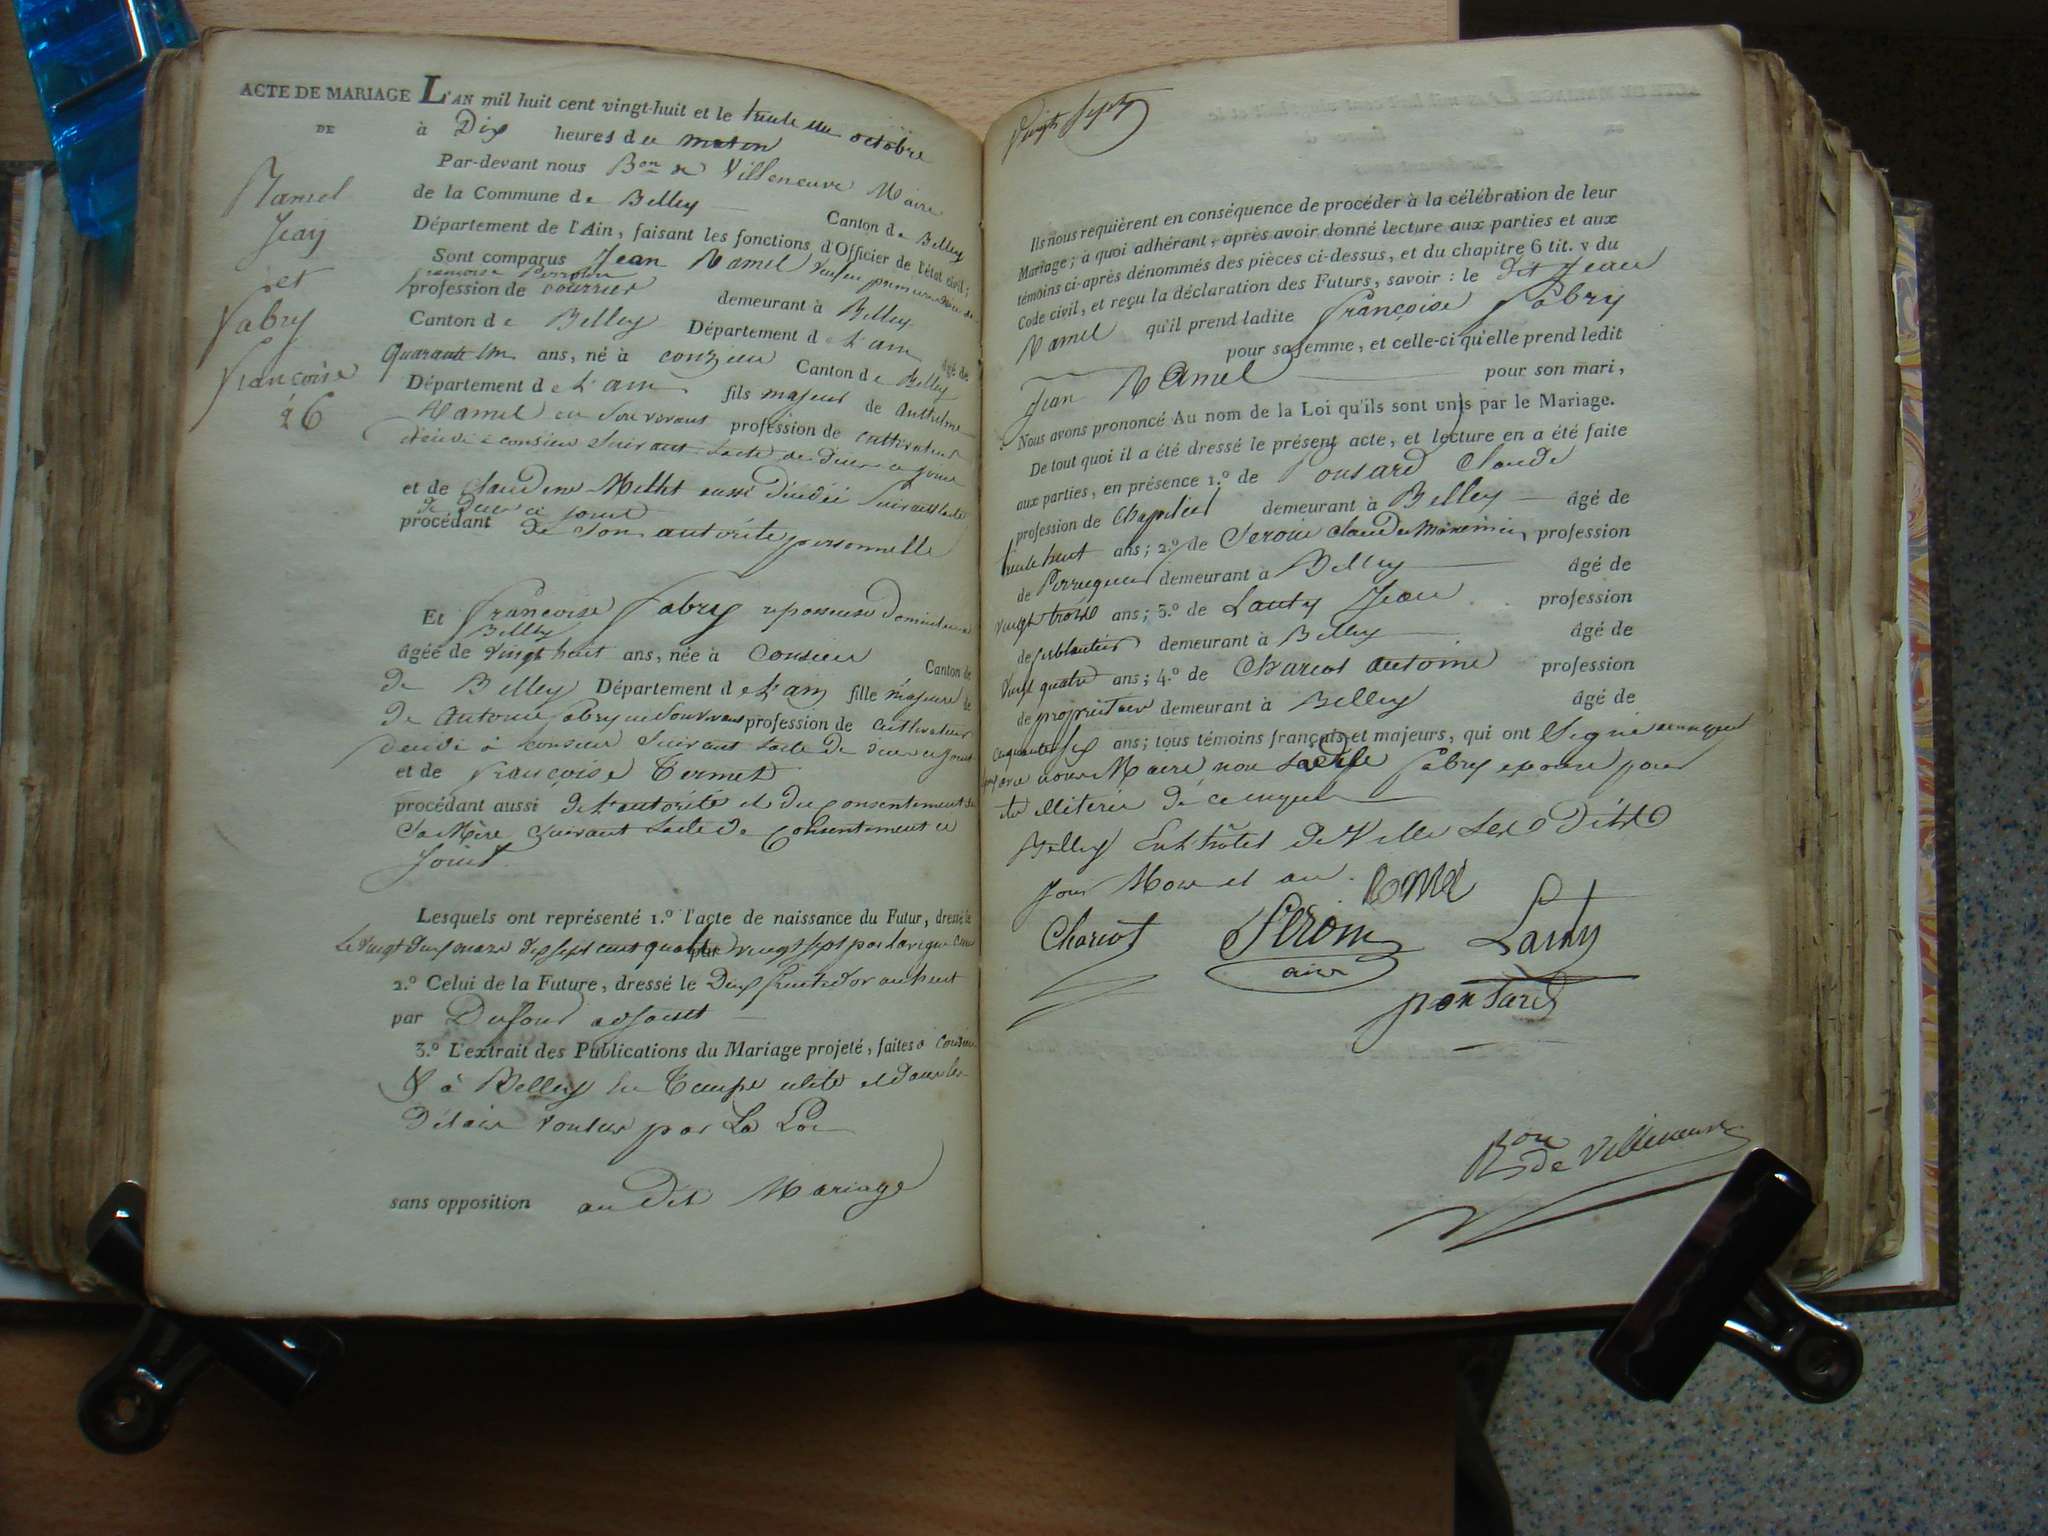 ACTE DE MARIAGE L'AN mil huit cent vingt-huit et le trente un octobre
DE
à Dix heures du matin
Par-devant nous Bon de Villeneuve Maire
de la Commune de Belley Canton de Belley
Département de l'Ain, faisant les fonctions d'Officier de l'état civil;
Ramel
Jean
et
Fabry
Françoise
26
Sont comparus Jean Ramel
Françoise
profession de courrier demeurant à Belley
Canton de Belley Département de L'ain âgé de
Quarante Un ans, né à conzieu Canton de Belley
Département de L'ain fils majeur de Anthelme
Ramel en son vivant profession de cultivateur
décédé à consieu suivant l'acte de décès ci joint
et de Claudine Millet aussi décédée suivant l'acte
de décès ci joint
procédant de son autorité personnelle
Et Françoise Fabry repasseuse Domiciliée à
Belley
âgée de vingt huit ans, née à Consieu Canton de
de Belley Département de L'ain fille majeure de
de Antoine Fabry en son vivant profession de cultivateur
décédé à consieu suivant l'acte de décès ci joint
et de Françoise Termet
procédant aussi de l'autorité et du consentement de
Sa Mère suivant l'acte de Consentement ci
Joint
Lesquels ont représenté 1.° l'acte de naissance du Futur, dressé le
Le vingt deux mars dix sept cent quatre vingt sept par
par
2.° Celui de la Future, dressé le Deux fructidor an huit
par Dufour adjoint
3.° L'extrait des Publications du Mariage projeté, faites à Consieu
& à Belley en temps utile et dans les
Délais voulus par La Loi
sans opposition au Dit Mariage
Vingt Sept
Ils nous requièrent en conséquence de procéder à la célébration de leur
Mariage; à quoi adhérant, après avoir donné lecture aux parties et aux
témoins ci-après dénommés des pièces ci-dessus, et du chapitre 6 tit. v du
Code civil, et reçu la déclaration des Futurs, savoir: le dit Jean
Ramel qu'il prend ladite Françoise Fabry
pour sa femme, et celle-ci qu'elle prend ledit
Jean Ramel pour son mari,
Nous avons prononcé Au nom de la Loi qu'ils sont unis par le Mariage.
De tout quoi il a été dressé le présent acte, et lecture en a été faite
aux parties, en présence 1.° de Ponsard Claude
profession de Chapelier demeurant à Belley âgé de
trente huit ans; 2.° de Seroin Claude profession
de Perruquier demeurant à Belley âgé de
vingt trois ans; 3.° de Lauty Jean profession
de ferblantier demeurant à Belley âgé de
Vingt quatre ans; 4.° de Chariot Antoine profession
de propriétaire demeurant à Belley âgé de
cinquante six ans; tous témoins français et majeurs, qui ont Signé
avec nous Maire non ladite Fabry épouse pour
être illitérée de ce enquise
Belley En L'hôtel de Ville Les Dits
Jour Mois et an. Ramel
Chariot Seroin Lauty
ainé
ponsard
Bon de Villeneuve